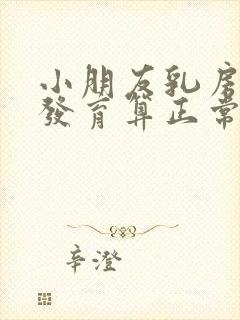 小朋友乳房
發育算正常
辛澄